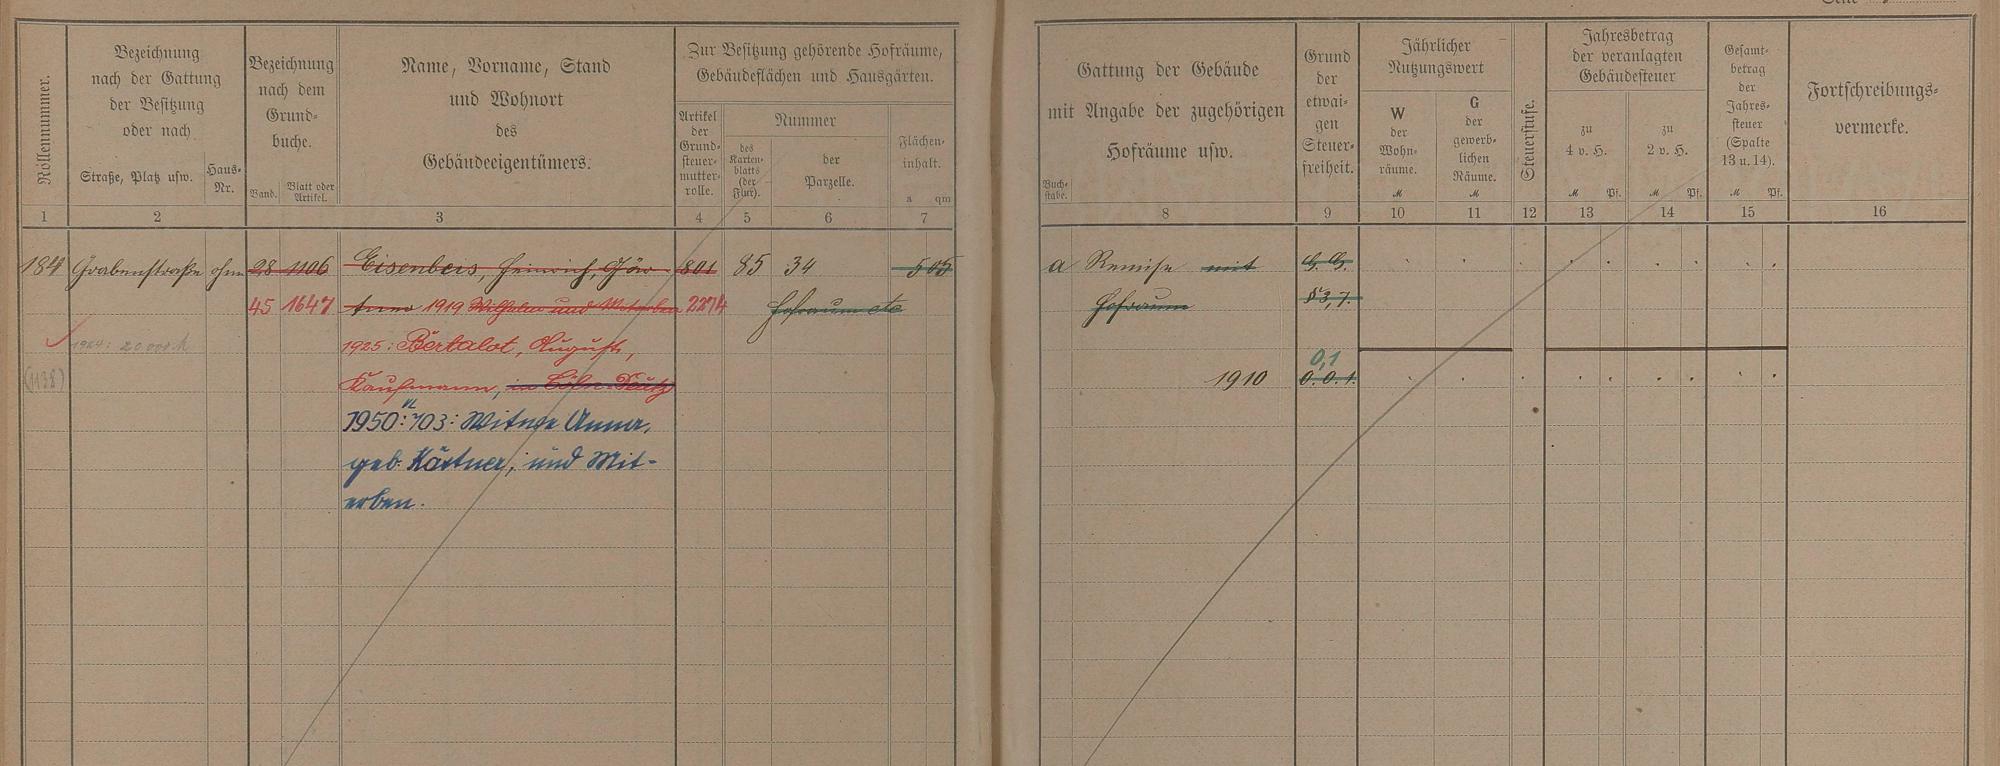 Rollennummer.
Bezeichnung
nach der Gattung
der Besitzung
oder nach
Straße, Platz usw.
Haus-
Nr.
Bezeichnung
nach dem
Grund-
buche.
Band.
Blatt oder
Artikel.
Name, Vorname, Stand
und Wohnort
des
Gebäudeeigentümers.
Zur Besitzung gehörende Hofräume,
Gebäudeflächen und Hausgärten.
Artikel
der
Grund-
steuer-
mutter-
rolle.
Nummer
des
Karten-
blatts
(der
Flur).
der
Parzelle.
Flächen-
inhalt.
a qm
1 2 3 4 5 6 7
184 Grabenstraße ohne 28 1106 Eisenbeis, Heinrich, Gär- 801 85 34 5 05
45 1647 1919 Wilhelm und Miterben 2274 Hofraum etc
1924: 20 000 M 1925: Bertalot, August,
(1138) Kaufmann, in Cöln-Deutz
1950: 703: Witwe Anna,
geb. Kästner, und Mit-
erben.
Gattung der Gebäude
mit Angabe der zugehörigen
Hofräume usw.
Buch-
stabe.
Grund
der
etwai-
gen
Steuer-
freiheit.
Jährlicher
Nutzungswert
W
der
Wohn-
räume.
M
G
der
gewerb-
lichen
Räume.
M
Steuerstufe.
Jahresbetrag
der veranlagten
Gebäudesteuer
zu
4 v. H.
M Pf.
zu
2 v. H.
M Pf.
Gesamt-
betrag
der
Jahres-
steuer
(Spalte
13 u. 14).
M Pf.
Fortschreibungs-
vermerke.
8 9 10 11 12 13 14 15 16
a Remise mit G. G.
Hofraum § 3, 7.
0,1
1910 0. 0. 1.